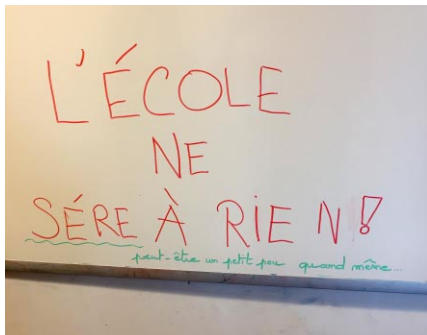 L'ÉCOLE
NE
SÉRE À RIEN !
peut-être un petit peu quand même...